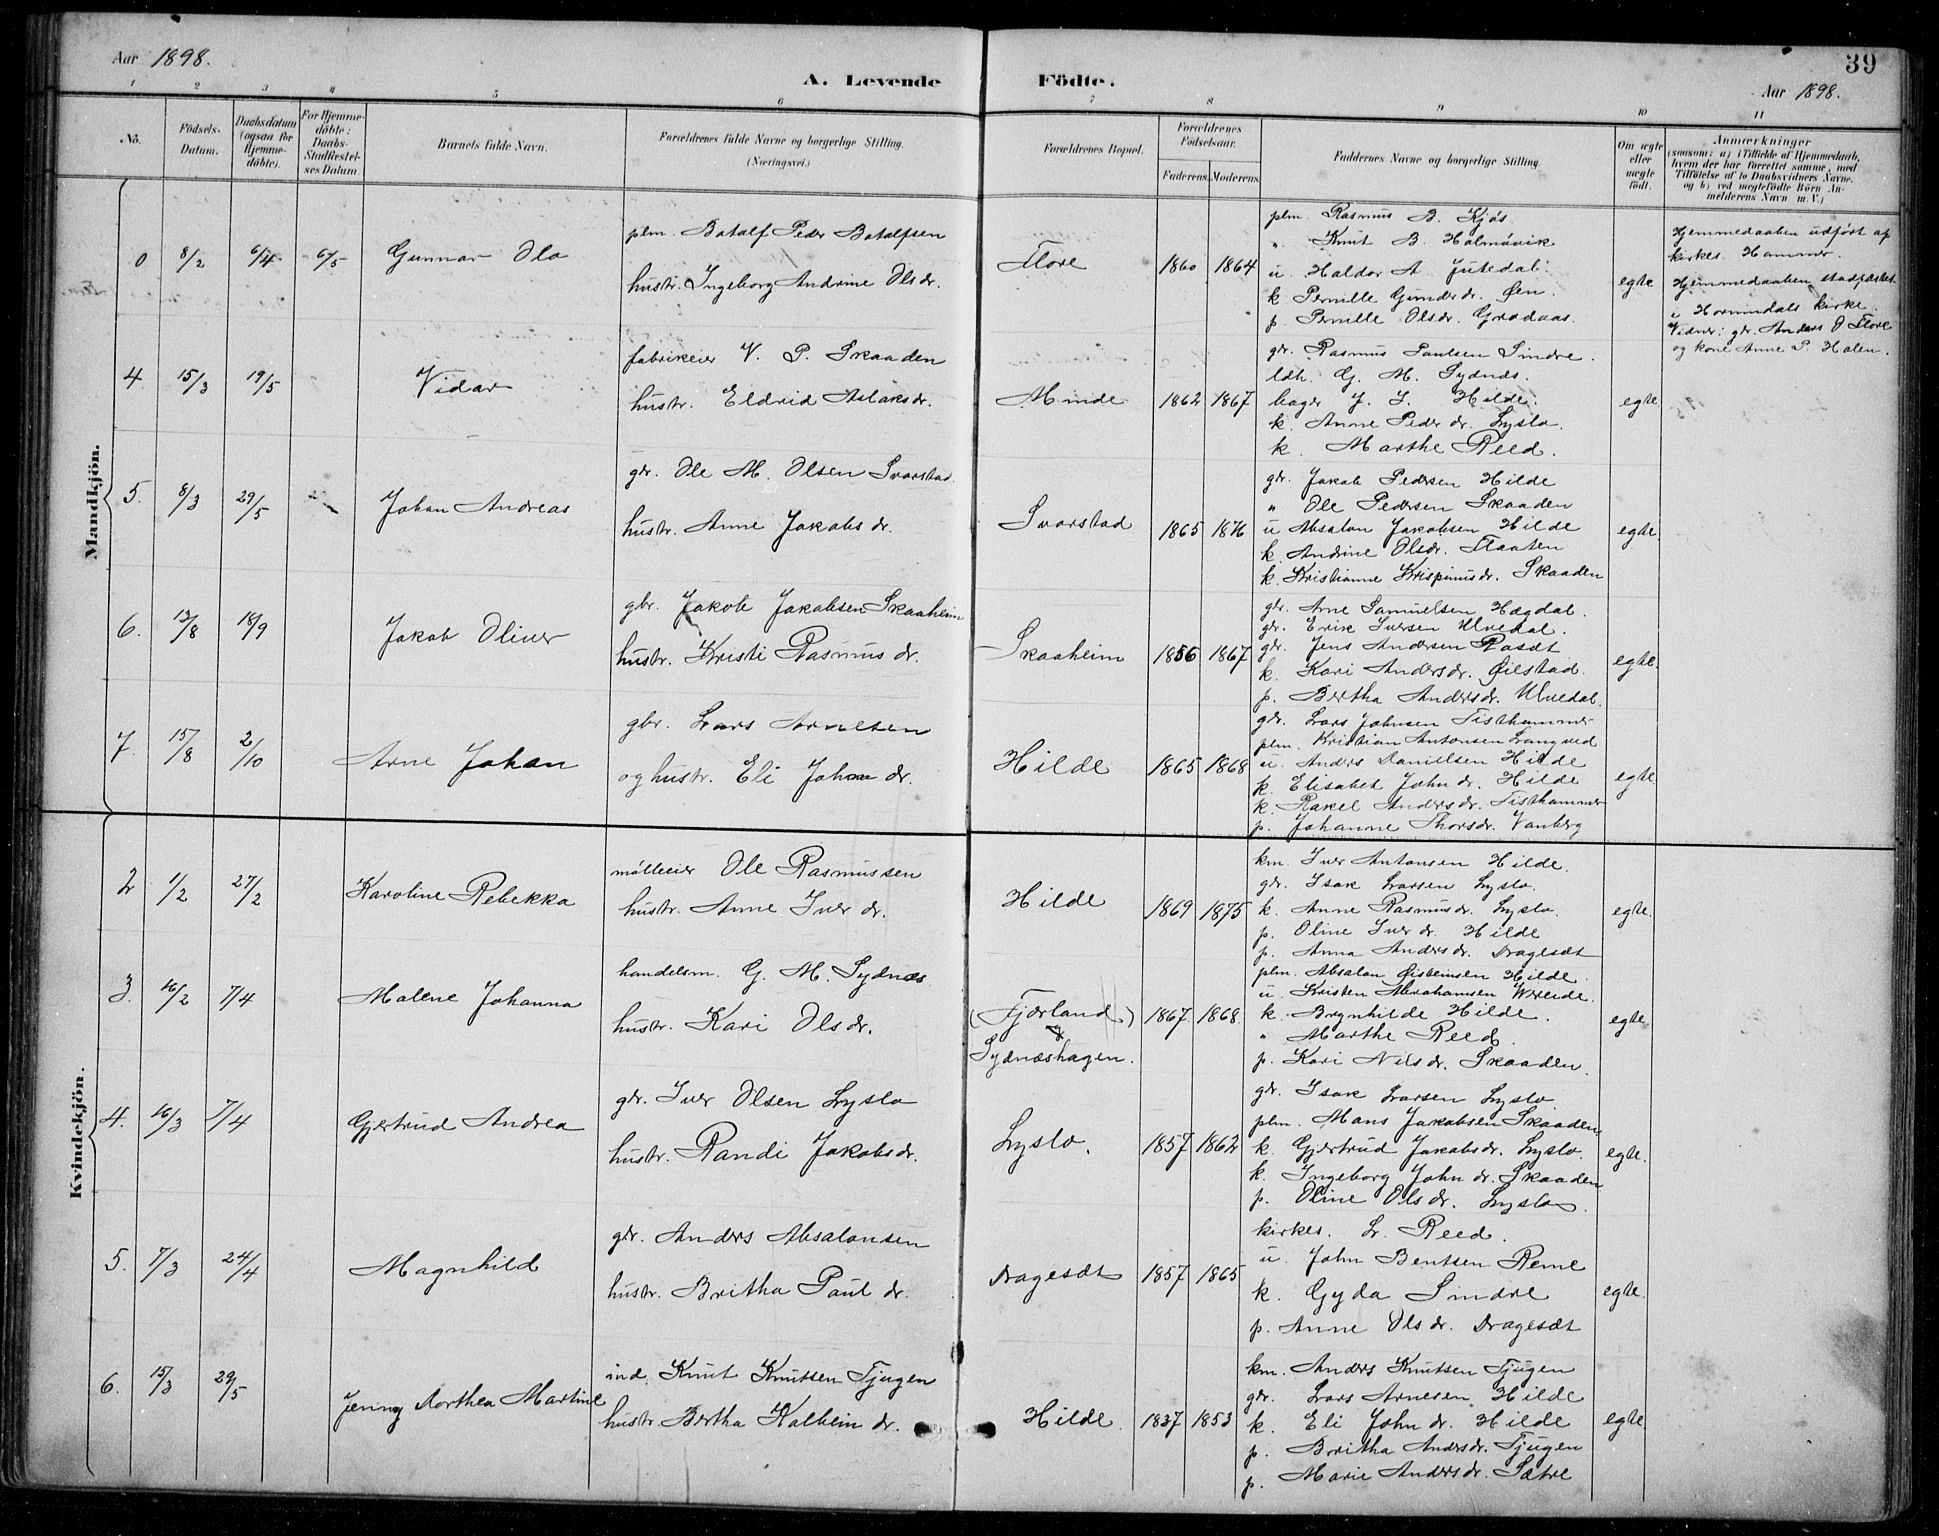 Aar 1898.
A. Levende Födte.
39
Aar 1898.
1 2 3 4 5 6 7 8 9 10 11
No.
Födsels-
Datum.
Daabsdatum
(ogsaa for
Hjemme-
döbte).
For Hjemme-
döbte:
Daabs-
Stadfæstel-
ses Datum.
Barnets fulde Navn.
Forældrenes fulde Navne og borgerlige Stilling.
(Næringsvei.)
Forældrenes Bopæl.
Forældrenes
Födselsaar.
Faderens. Moderens.
Faddernes Navne og borgerlige Stilling.
Om ægte
eller
uægte
födt.
Anmærkninger
(saasom: a) i Tilfælde af Hjemmedaab,
hvem der har forrettet samme, med
Tilföielse af to Daabsvidners Navne.
og b) ved uægtefödte Börn An-
melderens Navn m. V.)
Mandkjön.
0 8/2 6/4 6/5 Gunnar Ola
plm. Botolf Peder Botolfsen
hustr. Ingeborg Andrine Olsdr.
Flore 1860 1864
plm. Rasmus B. Kjøs
" Knut B. Holmøvik
u. Haldor A. Jutedal.
k Pernille Gunderdr. Øen.
p. Pernille Olsdr. Grodaas.
egte
Hjemmedaaben udført af
kirkes. Hammer.
Hjemmedaaben stadfæstet
i Hornindals kirke.
Vidner: gr. Anders O Flore
og kone Anne P. Holen.
4 15/3 19/5 Vidar
fabrikeier V. P. Skaaden
hustr. Eldrid Aslaksdr.
Minde 1862 1867
gr. Rasmus Paulsen Sindre.
ldh. G. M. Sydnæs.
bager J. I. Hilde.
k. Anne Pederdr. Lyslo.
k. Marthe Reed.
egte
5. 8/3 29/5 Johan Andreas
gr. Ole M. Olsen Svarstad.
hustr. Anne Jakobsdr.
Svarstad 1865 1876
gr. Jakob Pedersen Hilde
" Ole Pedersen Skaaden
u Absalon Jakobsen Hilde
k. Andrine Olsdr. Flaaten
k. Kristianne Krispinusdr. Skaaden
egte.
6. 13/8 18/9 Jakob Oliver
gbr. Jakob Jakobsen Skaaheim
hustr. Kristi Rasmusdr.
Skaaheim 1856 1867
gr. Arne Samuelsen Hægdal.
gr. Erik Iversen Ulvedal.
gr. Jens Andersen Rasdt
k. Kari Andersdr. Øilstad.
p. Bertha Andersdr. Ulvedal.
egte.
7. 15/8 2/10 Arne Johan
gbr. Lars Arnesen
og hustr. Eli Johandr.
Hilde 1865 1868
gr. Lars Johnsen Tisthammer
plm. Kristian Antonsen Langved
u. Anders Danielsen Hilde
k. Elisabet Johndr. Hilde
k. Rakel Andersdr. Tisthammer
p. Johanne Thorsdr. Vanberg
egte.
Kvindekjön.
2 1/2 27/2 Karoline Rebekka
mølleeier Ole Rasmussen
hustr. Anne Iverdr.
Hilde 1869 1875
km. Iver Antonsen Hilde.
gr. Isak Larsen Lyslo.
k. Anne Rasmusdr. Lyslo.
p. Oline Iverdr. Hilde
p. Anna Andersdr. Dragesæt
egte.
3. 16/2 7/4 Malene Johanna
handelsm. G. M. Sydnæs
hustr. Kari Olsdr.
(Fjærland)
Sydnæshagen.
1867 1868
plm. Absalon Øisteinsen Hilde.
u. Kristen Abrahamsen Vereide.
k. Brynhilde Hilde.
" Marthe Reed.
p. Kari Nilsdr. Skaaden.
egte.
4. 16/3 7/4 Gjertrud Andrea
gr. Iver Olsen Lyslo
hustr. Randi Jakobsdr.
Lyslo. 1857 1862
gr. Isak Larsen Lyslo
plm. Mons Jakobsen Skaaden
k. Gjertrud Jakobsdr. Lyslo.
k. Ingeborg Johndr. Skaaden
p. Oline Olsdr. Lyslo.
egte.
5. 7/3 24/4 Magnhild
gr. Anders Absalonsen
hustr. Britha Pauldr.
Dragesæt 1857 1865
kirkes. L. Reed.
u. John Bentsen Reme
k. Gyda Sindre
p. Anne Olsdr. Dragesæt
egte.
6. 15/3 29/5 Jenny Dorthea Martine
ind. Knut Knutsen Tjugen
hustr. Bertha Kolbeindr.
Hilde. 1837 1853
km. Anders Knutsen Tjugen
gr. Lars Arnesen Hilde
k. Eli Johndr. Hilde
p. Britha Andersdr. Tjugen
p. Marie Andersdr. Sætre
egte.